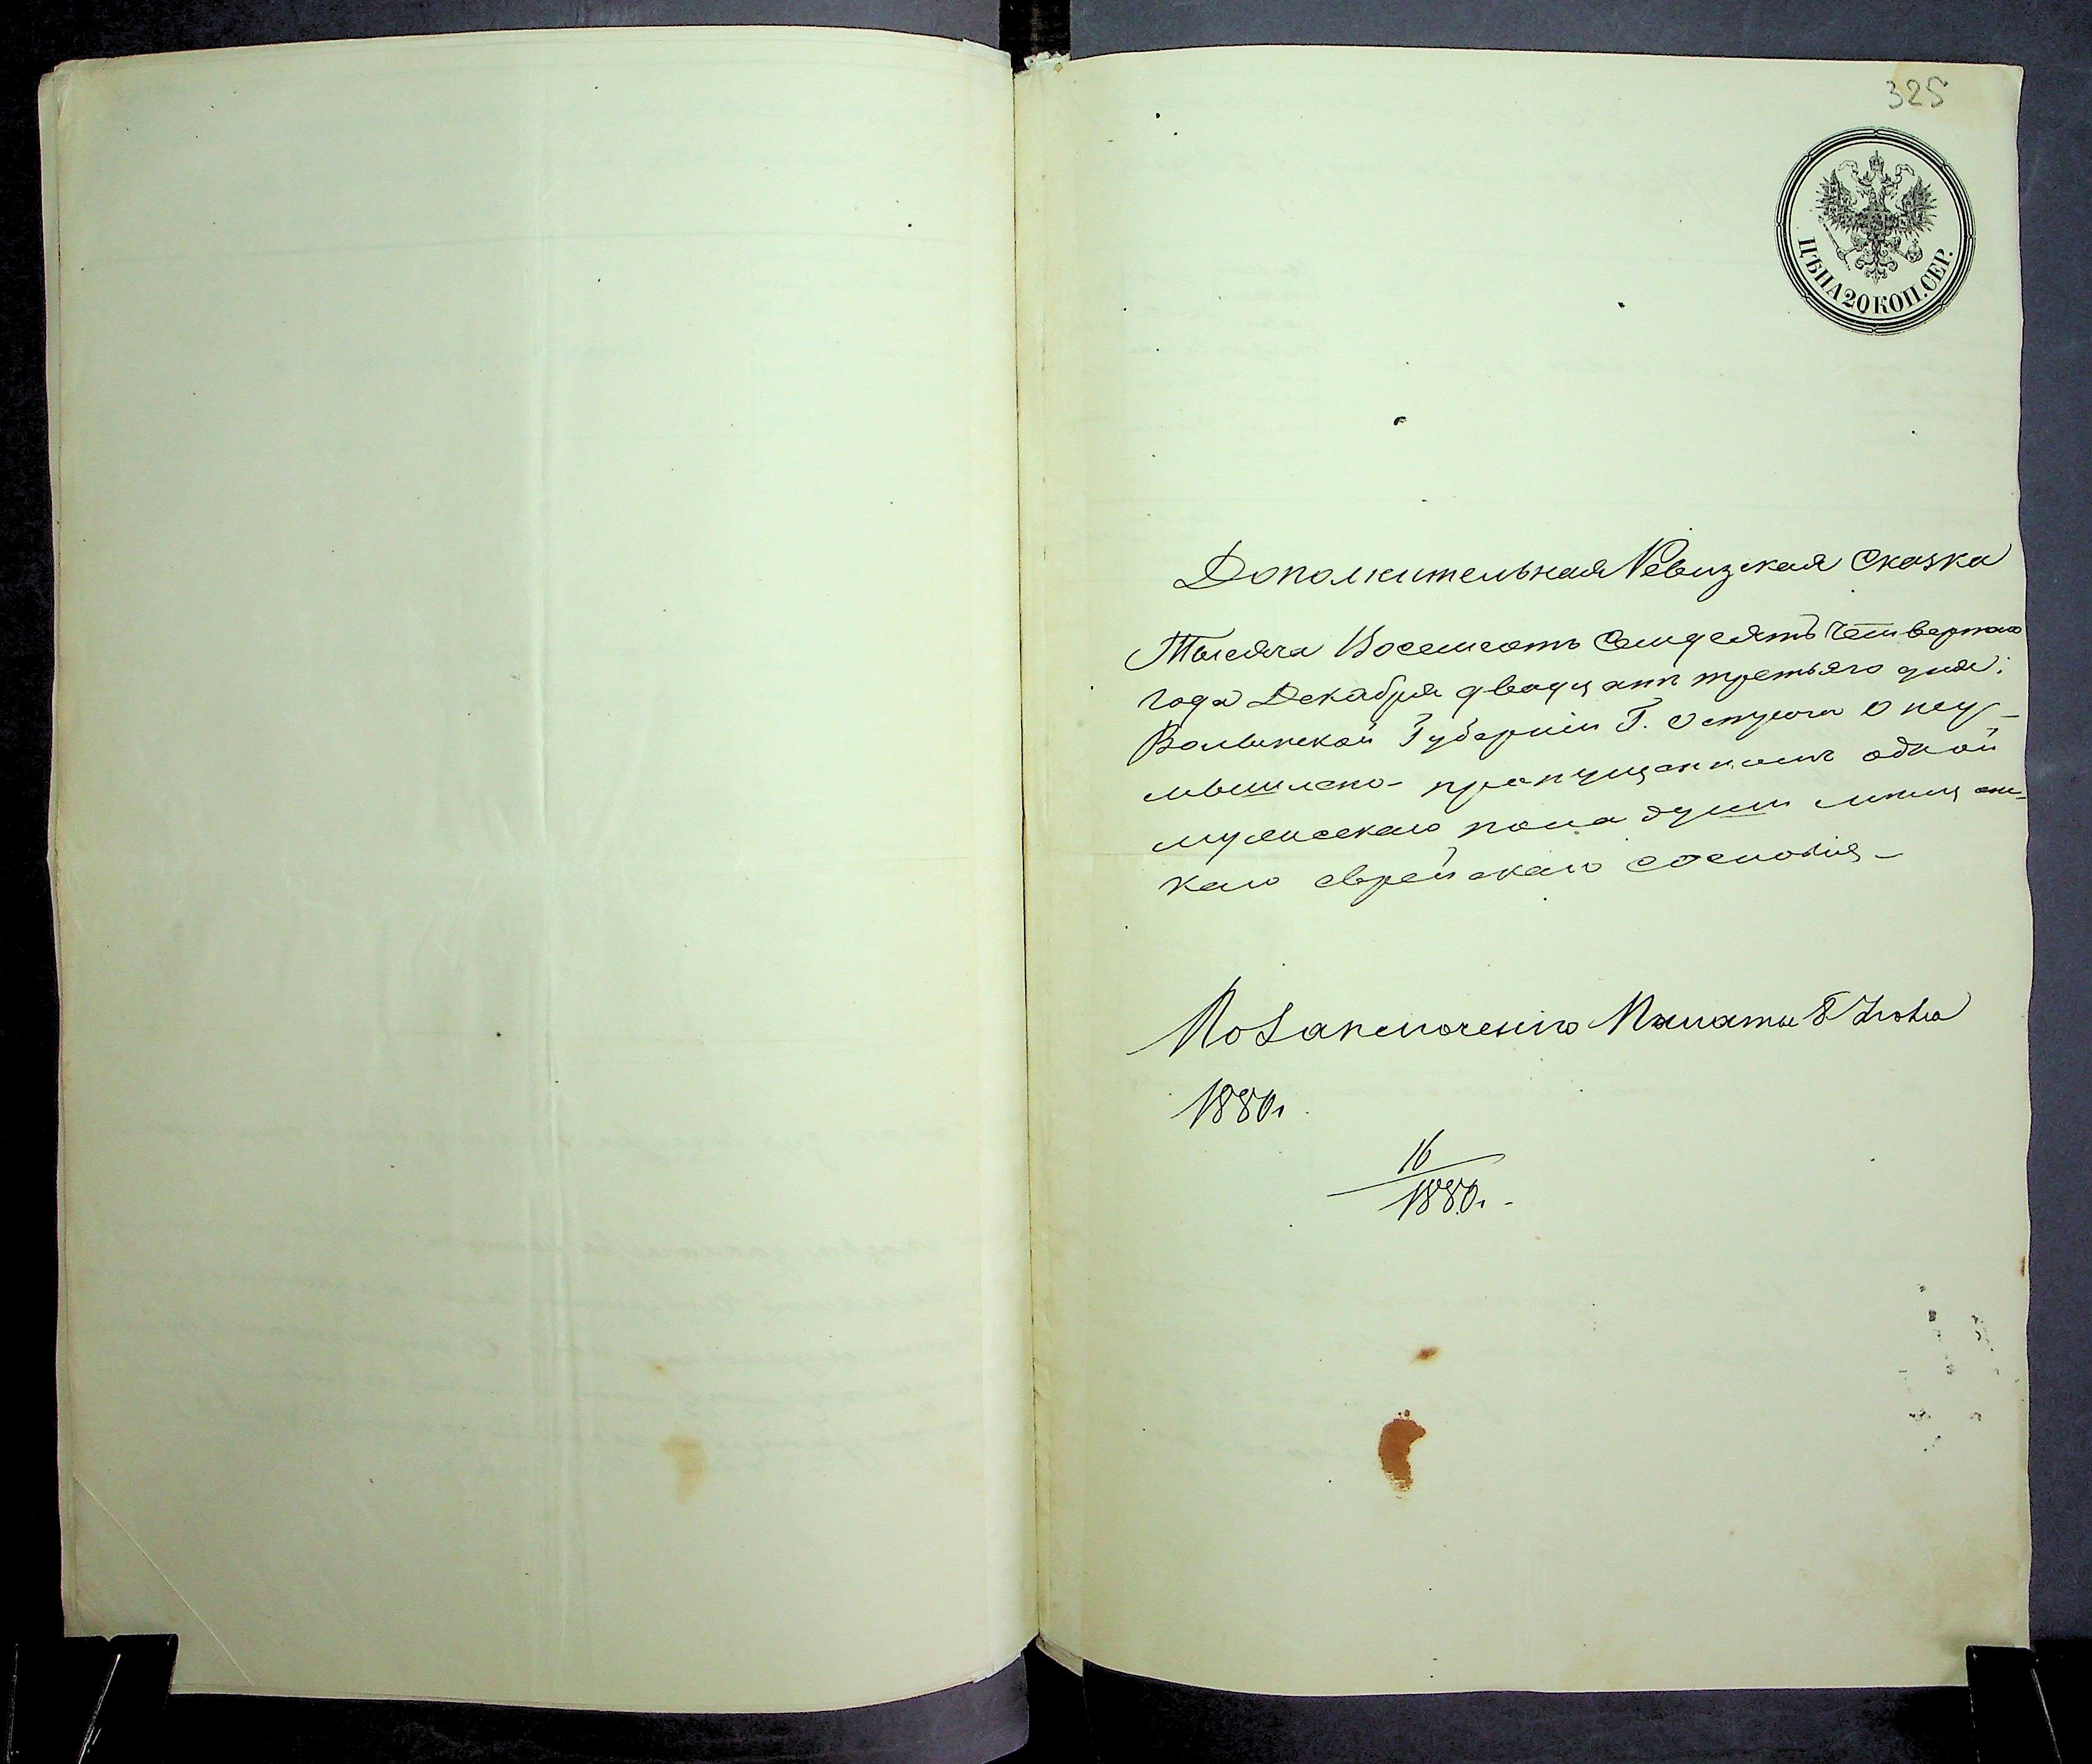 325
ЦѢНА 20 КОП. СЕР.
Дополнительная Ревизская Сказка
Тысяча Восемсотъ Семдесятъ Четвертого
года Декабря двадцать третьяго дня.
Волынской Губерніи Г. Острога О неу-
мышлено-пропущенномъ одной
мужескаго пола души мѣщанс-
каго еврейскаго сословія-
По Заключенію Палаты 8 Іюля
1880г.
16
1880г.-